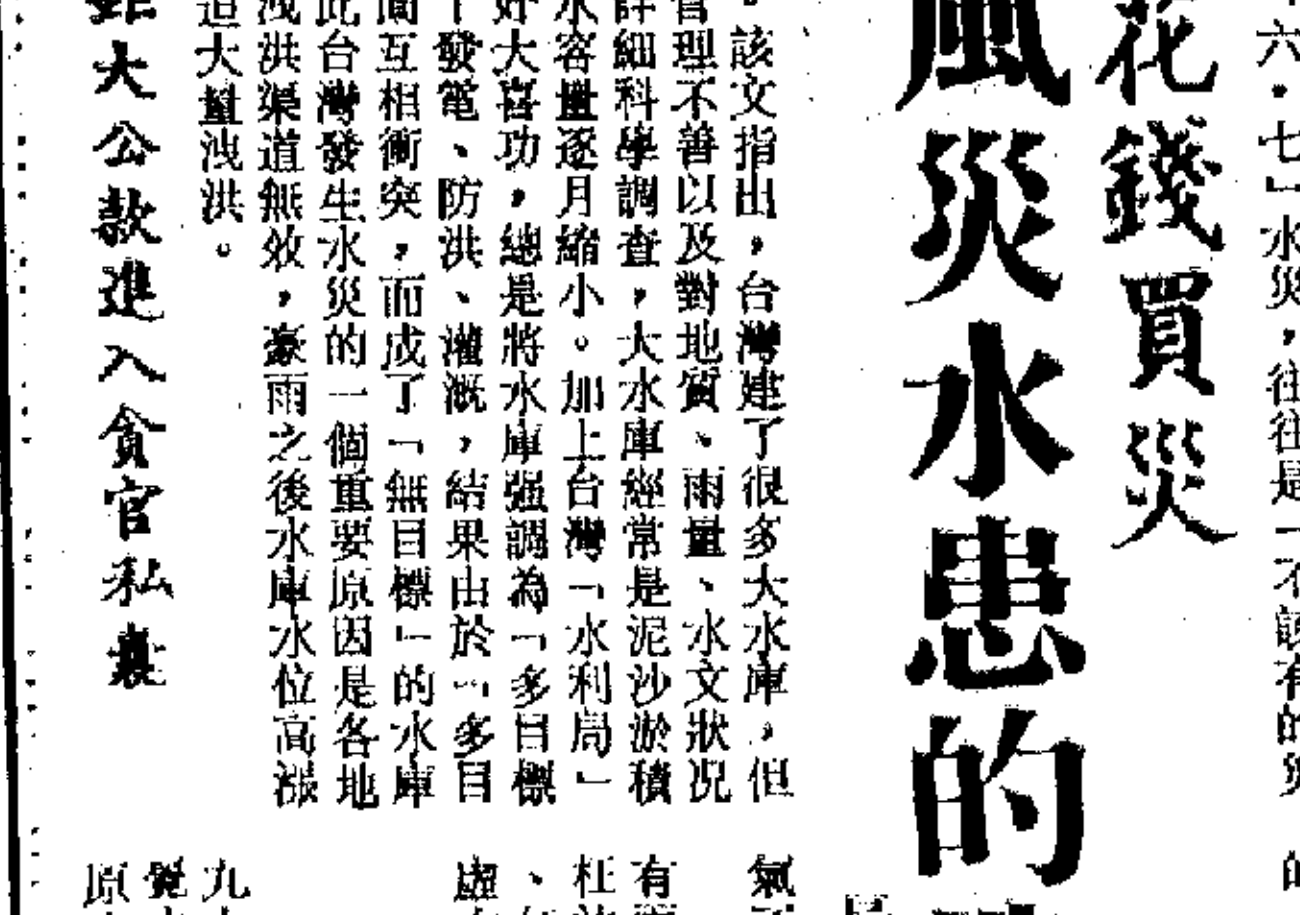 六・七」水災，往往是一不該有的災
花錢買災
風災水患的
。該文指出，台灣建了很多大水庫，但
管理不善以及對地質、雨量、水文狀況
詳細科學調查，大水庫經常是泥沙淤積
水容量逐月縮小。加上台灣「水利局」
好大喜功，總是將水庫强調為「多目標
發電、防洪、灌溉，結果由於「多目
間互相衝突，而成了「無目標」的水庫
此台灣發生水災的一個重要原因是各地
洩洪渠道無效，豪雨之後水庫水位高漲
迫大量洩洪。
大公款進入貪官私囊
氣
有
杜
、
虛
九
覺
原